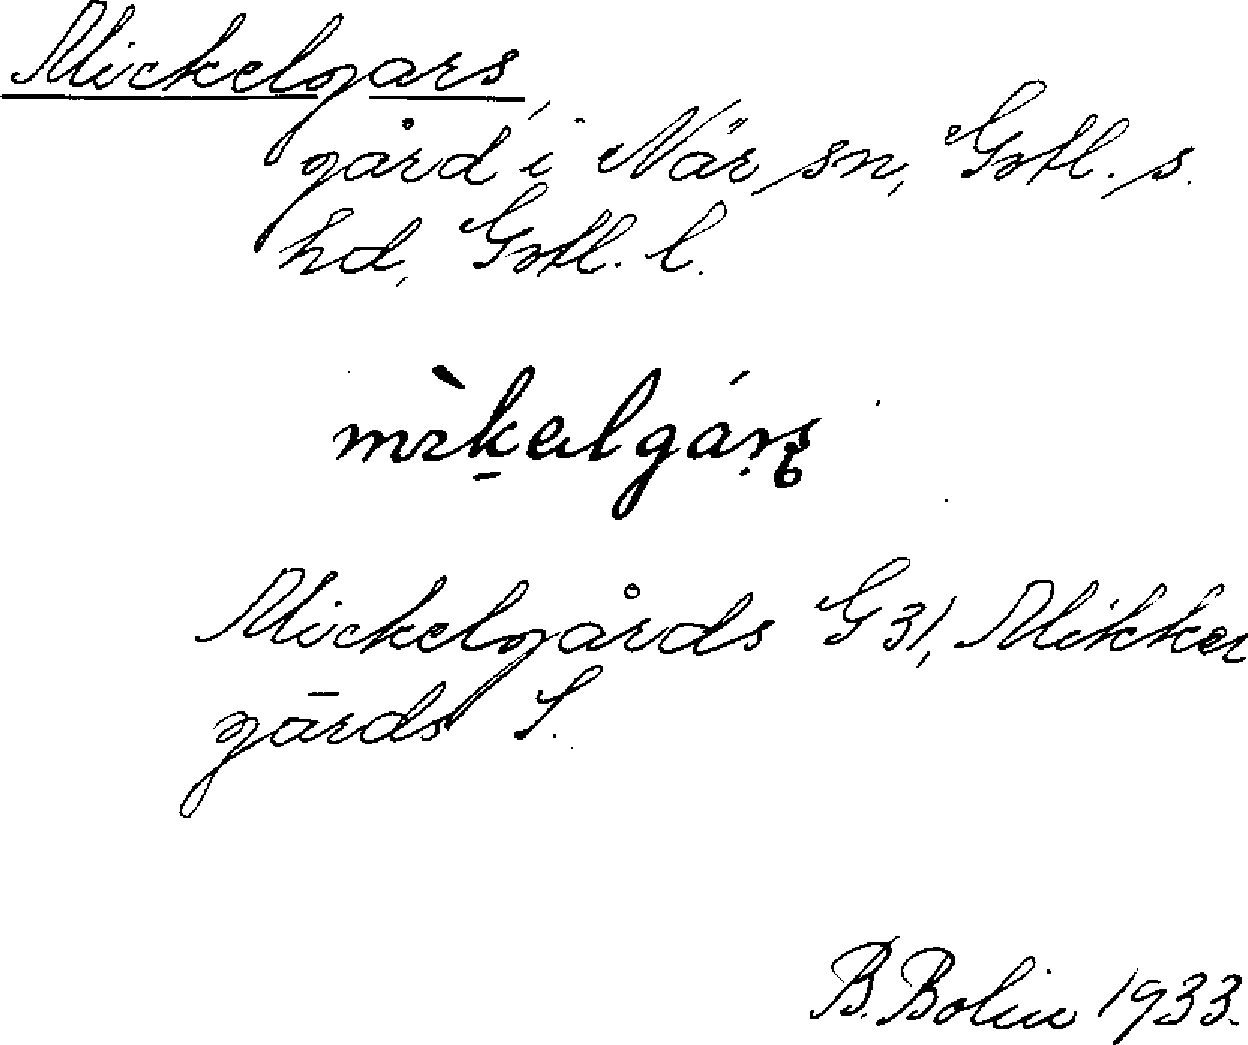 Mickelgars,
gård i När sn, Gotl. s.
hd, Gotl. l.
mɪ̀k̠əlgárs̥
Mickelgårds G 31, Mikkel
gārds S.
B. Bolin 1933.